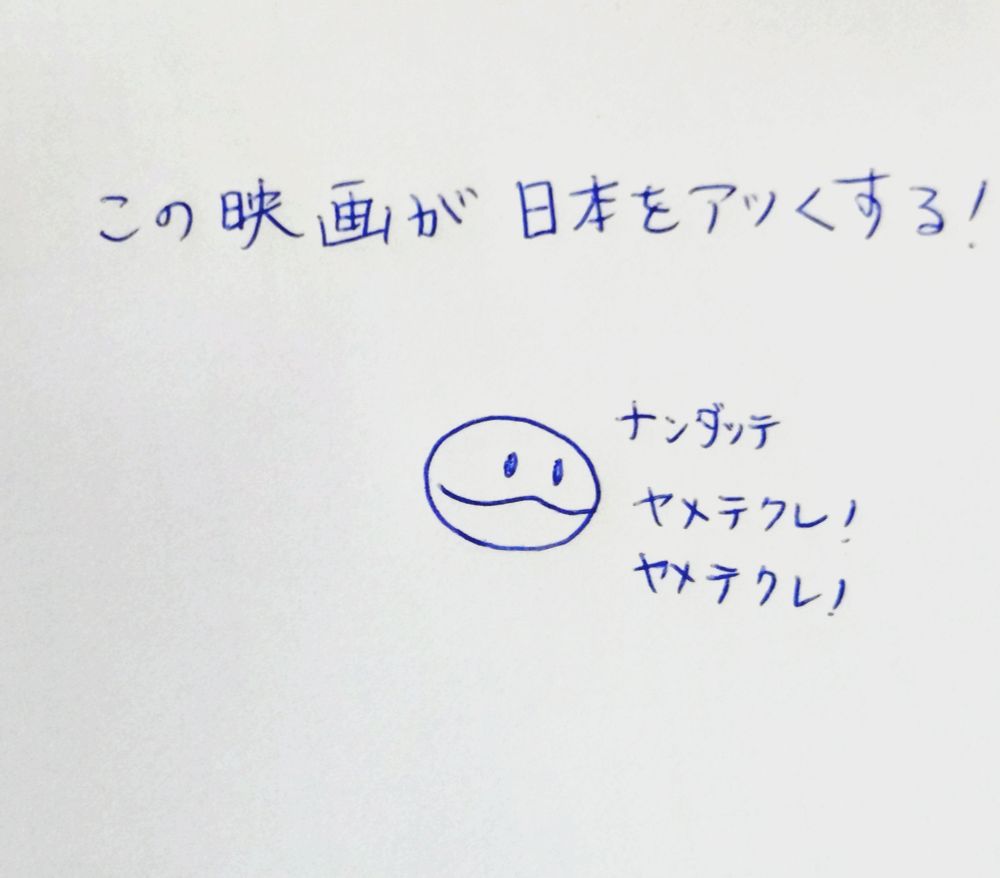 この映画が日本をアツくする!
ナンダッテ
ヤメテクレ!
ヤメテクレ!